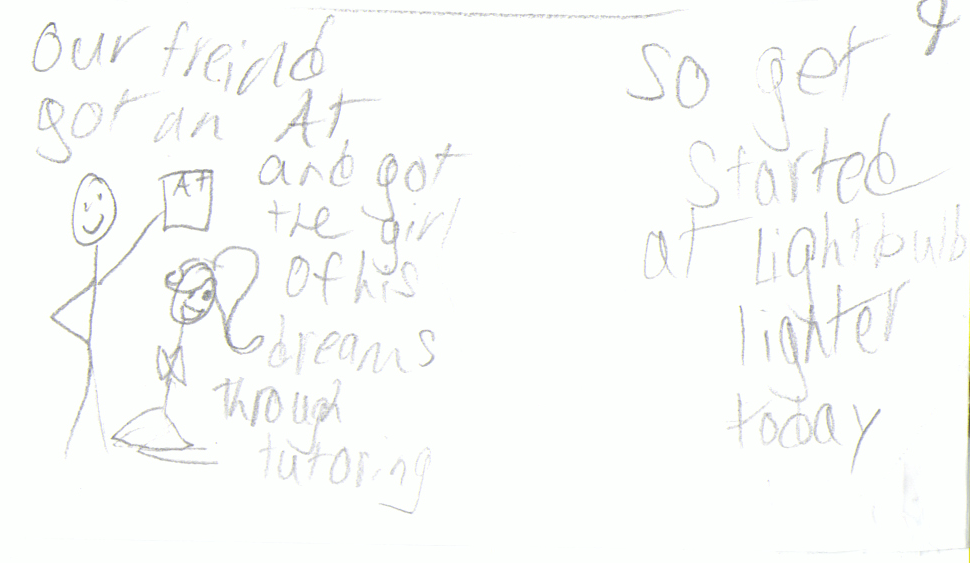 our freind
got an A+
and got
the girl
of his
dreams
through
tutoring
A+
so get
started
at lightbulb
lighter
today